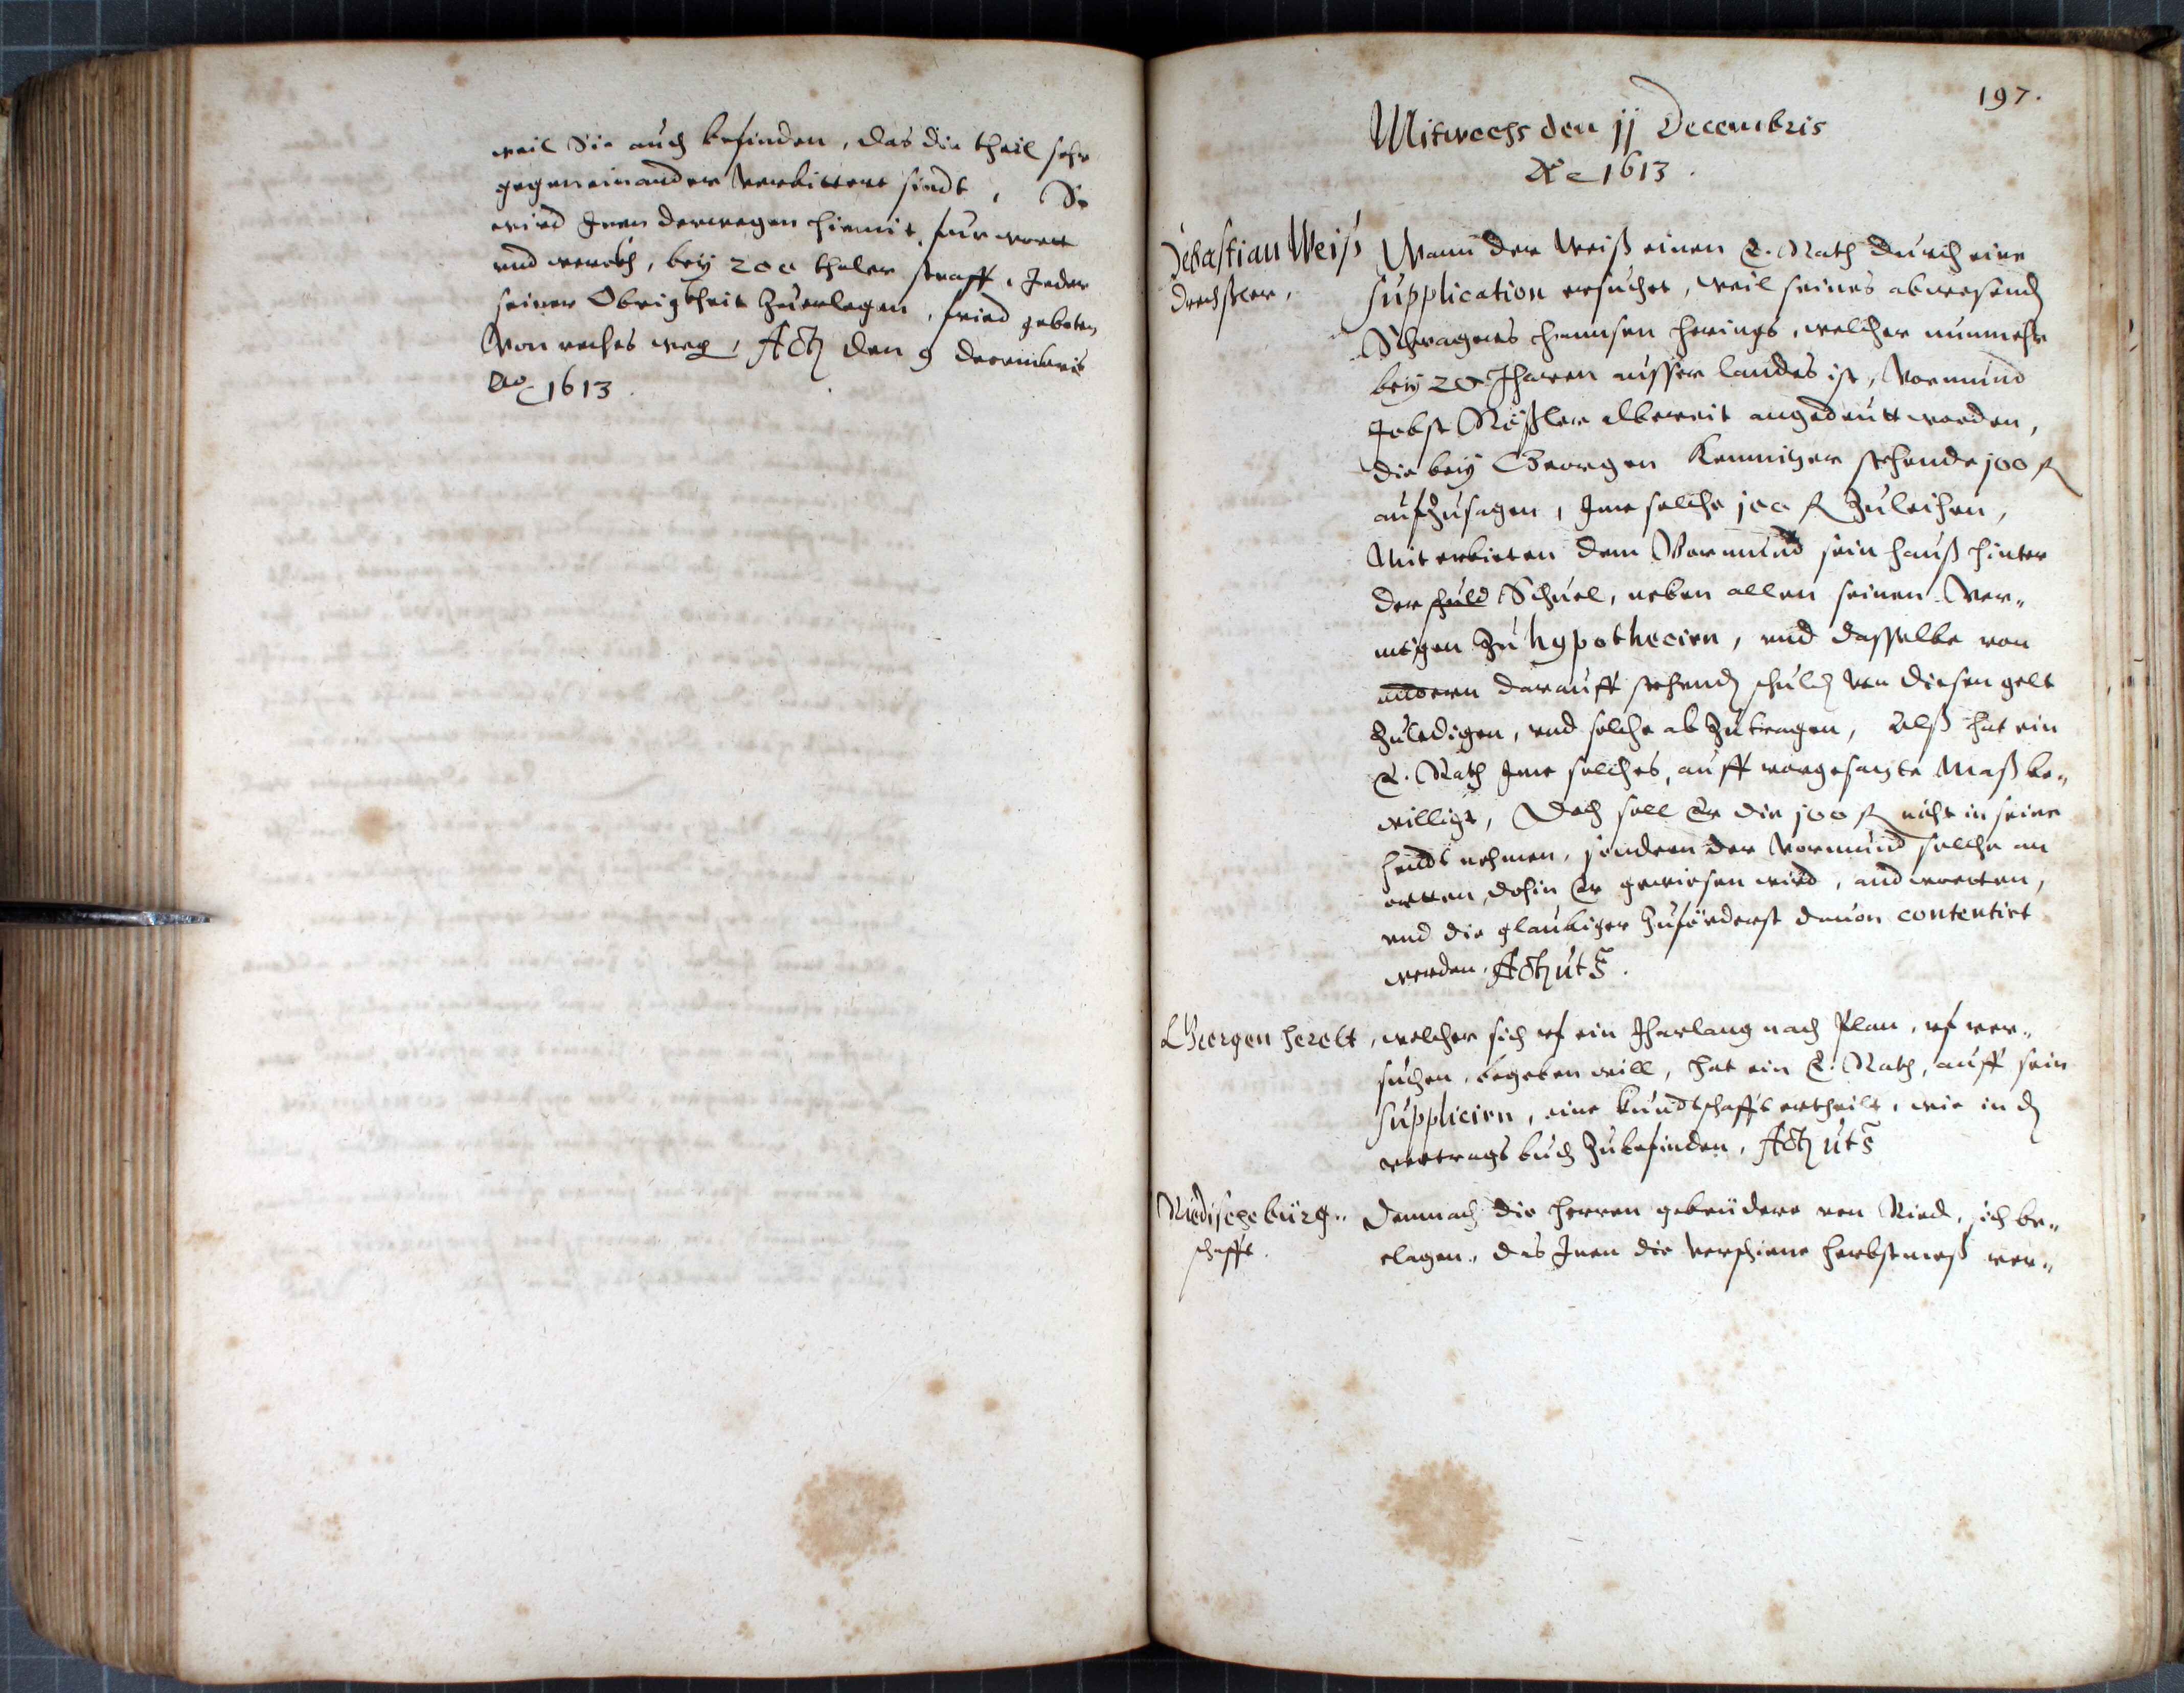 weil Sie auch befinden, das die theil sehr
gegeneinander verbittert sindt, So
wird Inen derwegen hiemit, fur wort
und werckh, bey 200 thaler straff, Jeder
seiner Obrigkheit zuerlegen, fried geboten
Von rechts weg, Actz den 9 Decembris
Ao 1613.
197.
Mitwochs den 11 Decembris
Ao 1613.
Sebastian Weiß
Drechßler,
Wann der Weiß einen E. Rath durch eine
supplication ersuchet, weil seines abwesend
Schwagers Hannsen Herings, welcher nunmehr
bey 20 Jharen ausser landes ist, Vormund
Jobst Rößler albereit angedeutt worden,
die bey Georgen Kemnitzer stehende 100 fl
aufzusagen, Ime solche 100 fl zuleihen,
Mit erbieten dem Vormund sein hauß hinter
der schuld Schuel, neben allen seinen Ver„
mögen zu hypothecirn, und dasselbe von
andern darauff stehend schuld von diesen gelt
zuledigen, und solche ab zutragen, Alß hat ein
E. Rath Ime solches, auff vorgesagte Maß be„
willigt, Doch soll Er die 100 fl nicht in seine
hendt nehmen, sondern der Vormund solche an
orten, dohin Er gewiesen wird, andworten,
und die glaubiger zuförderst dauon contentirt
werden, Actz uts.
Georgen Herolt, welcher sich uf ein Jharlang nach Plan, uf ver„
suchen, begeben will, hat ein E. Rath, auff sein
supplicirn, eine kundtschafft ertheilt, wie in d
vertrags buch zubefinden, Actz uts
Riedische bürg„
schafft.
Demnach die herren gebrüdere von Ried, sich be„
clagen, das Inen die verschiene herbstmeß ver„